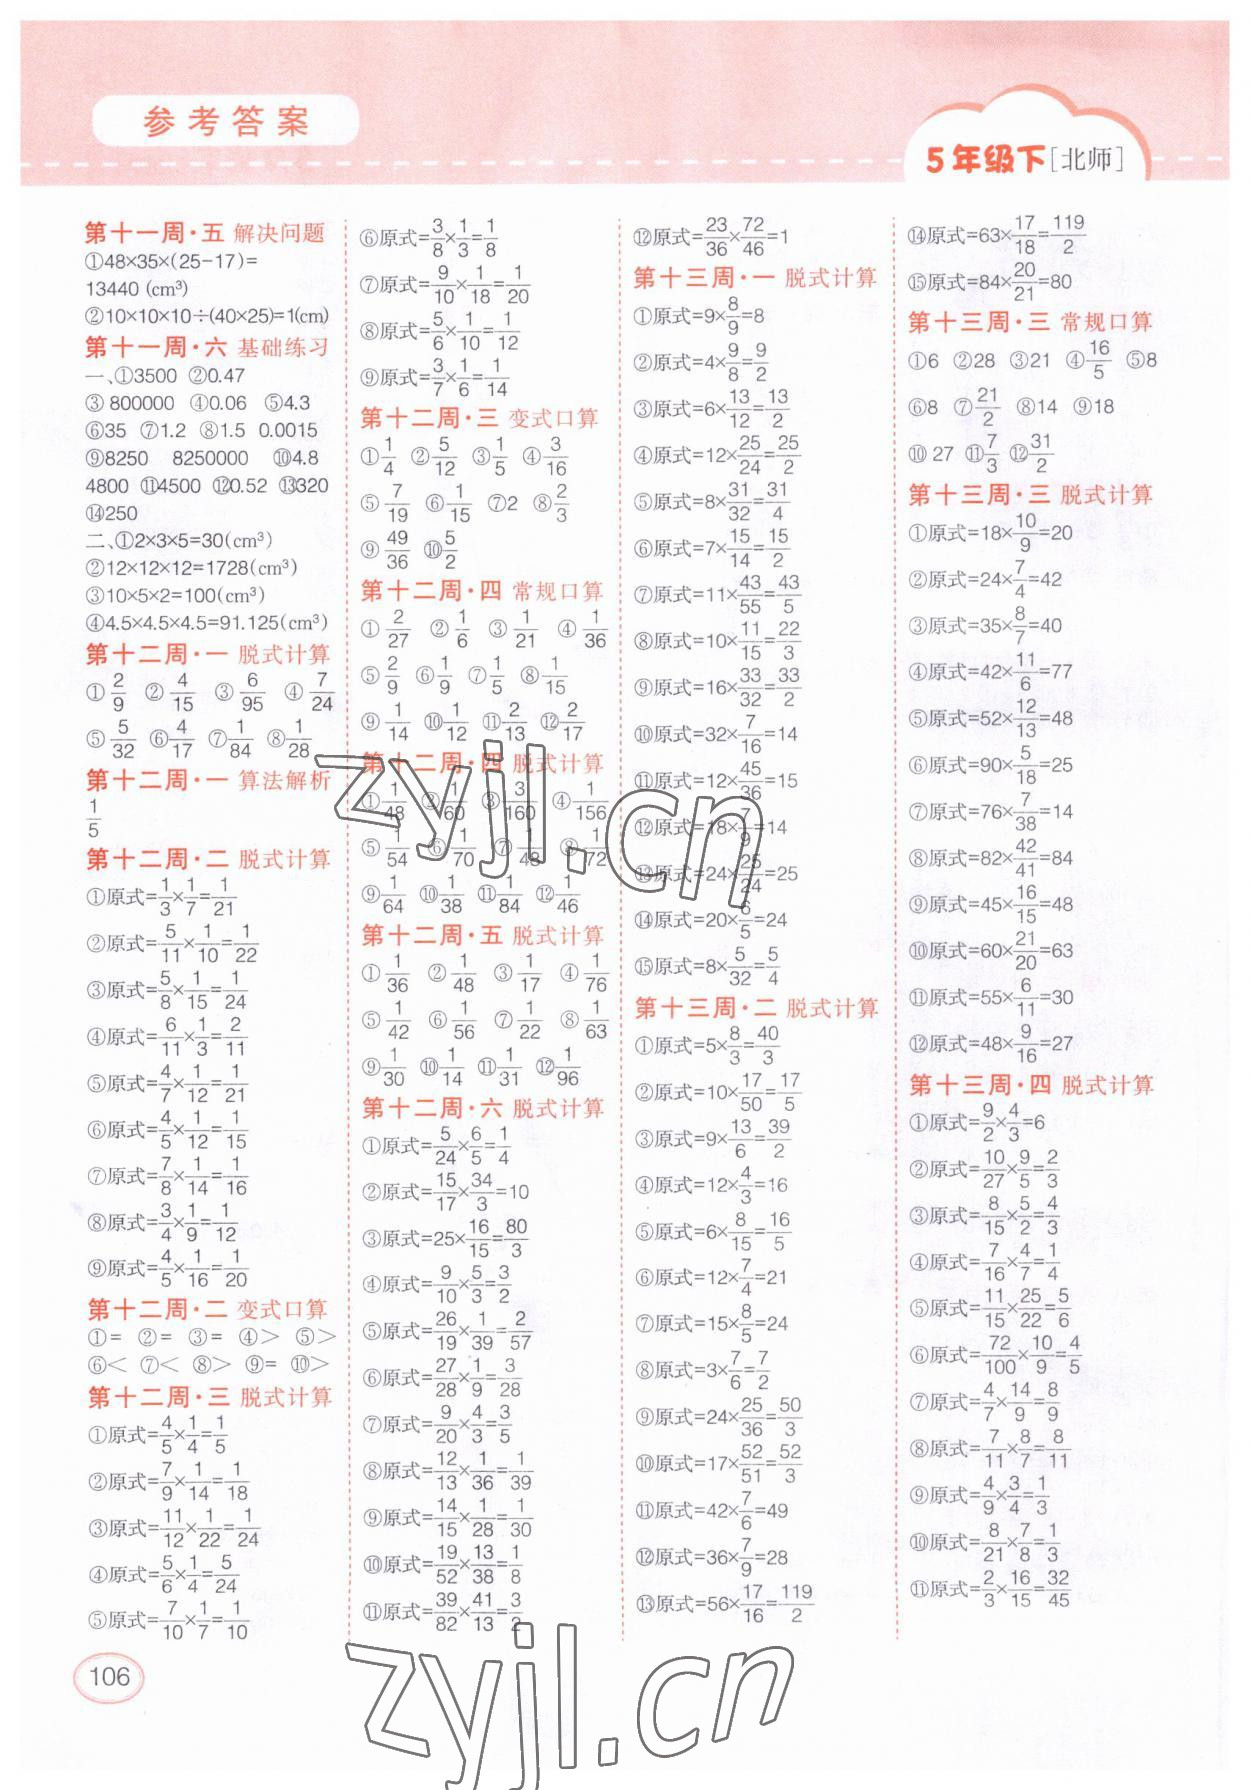 参考答案
5年级下[北师]
第十一周·五 解决问题
①48×35×(25-17)=
13440 (cm³)
②10×10×10÷(40×25)=1(cm)
第十一周·六 基础练习
一、①3500 ②0.47
③800000 ④0.06 ⑤4.3
⑥35 ⑦1.2 ⑧1.5 0.0015
⑨8250 8250000 ⑩4.8
4800 ⑪4500 ⑫0.52 ⑬320
⑭250
二、①2×3×5=30(cm³)
②12×12×12=1728(cm³)
③10×5×2=100(cm³)
④4.5×4.5×4.5=91.125(cm³)
第十二周·一 脱式计算
①2/9 ②4/15 ③6/95 ④7/24
⑤5/32 ⑥4/17 ⑦1/84 ⑧1/28
第十二周·一 算法解析
1/5
第十二周·二 脱式计算
①原式=1/3×1/7=1/21
②原式=5/11×1/10=1/22
③原式=5/8×1/15=1/24
④原式=6/11×1/3=2/11
⑤原式=4/7×1/12=1/21
⑥原式=4/5×1/12=1/15
⑦原式=7/8×1/14=1/16
⑧原式=3/4×1/9=1/12
⑨原式=4/5×1/16=1/20
第十二周·二 变式口算
①= ②= ③= ④> ⑤>
⑥< ⑦< ⑧> ⑨= ⑩>
第十二周·三 脱式计算
①原式=4/5×1/4=1/5
②原式=7/9×1/14=1/18
③原式=11/12×1/22=1/24
④原式=5/6×1/4=5/24
⑤原式=7/10×1/7=1/10
⑥原式=3/8×1/3=1/8
⑦原式=9/10×1/18=1/20
⑧原式=5/6×1/10=1/12
⑨原式=3/7×1/6=1/14
第十二周·三 变式口算
①1/4 ②5/12 ③1/5 ④3/16
⑤7/19 ⑥1/15 ⑦2 ⑧2/3
⑨49/36 ⑩5/2
第十二周·四 常规口算
①2/27 ②1/6 ③1/21 ④1/36
⑤2/9 ⑥1/9 ⑦1/5 ⑧1/15
⑨1/14 ⑩1/12 ⑪2/13 ⑫2/17
第十二周·四 脱式计算
①1/48 ②1/60 ③3/160 ④1/156
⑤1/54 ⑥1/70 ⑦1/48 ⑧1/72
⑨1/64 ⑩1/38 ⑪1/84 ⑫1/46
第十二周·五 脱式计算
①1/36 ②1/48 ③1/17 ④1/76
⑤1/42 ⑥1/56 ⑦1/22 ⑧1/63
⑨1/30 ⑩1/14 ⑪1/31 ⑫1/96
第十二周·六 脱式计算
①原式=5/24×6/5=1/4
②原式=15/17×34/3=10
③原式=25×16/15=80/3
④原式=9/10×5/3=3/2
⑤原式=26/19×1/39=2/57
⑥原式=27/28×1/9=3/28
⑦原式=9/20×4/3=3/5
⑧原式=12/13×1/36=1/39
⑨原式=14/15×1/28=1/30
⑩原式=19/52×13/38=1/8
⑪原式=39/82×41/13=3/2
⑫原式=23/36×72/46=1
第十三周·一 脱式计算
①原式=9×8/9=8
②原式=4×9/8=9/2
③原式=6×13/12=13/2
④原式=12×25/24=25/2
⑤原式=8×31/32=31/4
⑥原式=7×15/14=15/2
⑦原式=11×43/55=43/5
⑧原式=10×11/15=22/3
⑨原式=16×33/32=33/2
⑩原式=32×7/16=14
⑪原式=12×45/36=15
⑫原式=18×7/9=14
⑬原式=24×25/24=25
⑭原式=20×6/5=24
⑮原式=8×5/32=5/4
第十三周·二 脱式计算
①原式=5×8/3=40/3
②原式=10×17/50=17/5
③原式=9×13/6=39/2
④原式=12×4/3=16
⑤原式=6×8/15=16/5
⑥原式=12×7/4=21
⑦原式=15×8/5=24
⑧原式=3×7/6=7/2
⑨原式=24×25/36=50/3
⑩原式=17×52/51=52/3
⑪原式=42×7/6=49
⑫原式=36×7/9=28
⑬原式=56×17/16=119/2
⑭原式=63×17/18=119/2
⑮原式=84×20/21=80
第十三周·三 常规口算
①6 ②28 ③21 ④16/5 ⑤8
⑥8 ⑦21/2 ⑧14 ⑨18
⑩27 ⑪7/3 ⑫31/2
第十三周·三 脱式计算
①原式=18×10/9=20
②原式=24×7/4=42
③原式=35×8/7=40
④原式=42×11/6=77
⑤原式=52×12/13=48
⑥原式=90×5/18=25
⑦原式=76×7/38=14
⑧原式=82×42/41=84
⑨原式=45×16/15=48
⑩原式=60×21/20=63
⑪原式=55×6/11=30
⑫原式=48×9/16=27
第十三周·四 脱式计算
①原式=9/2×4/3=6
②原式=10/27×9/5=2/3
③原式=8/15×5/2=4/3
④原式=7/16×4/7=1/4
⑤原式=11/15×25/22=5/6
⑥原式=72/100×10/9=4/5
⑦原式=4/7×14/9=8/9
⑧原式=7/11×8/7=8/11
⑨原式=4/9×3/4=1/3
⑩原式=8/21×7/8=1/3
⑪原式=2/3×16/15=32/45
106
zyjl.cn
zyjl.cn